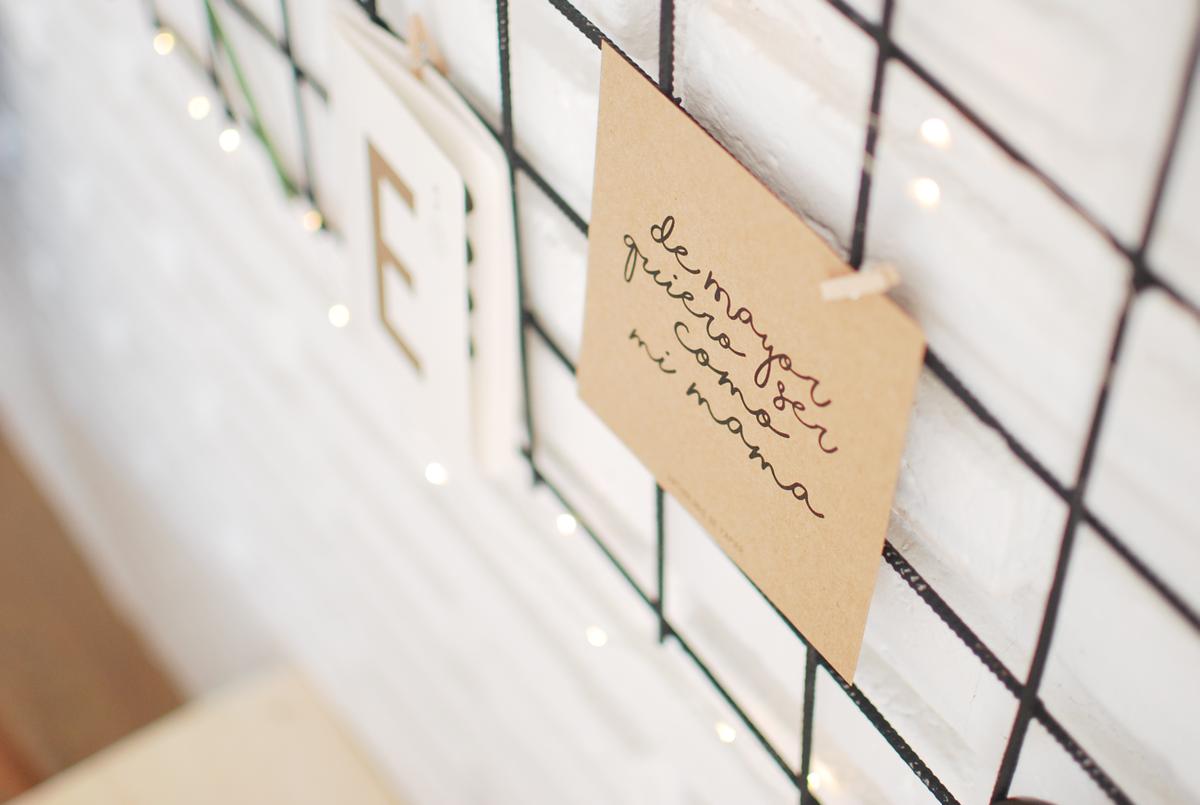 E
de mayor
quiero ser
como
mi mama